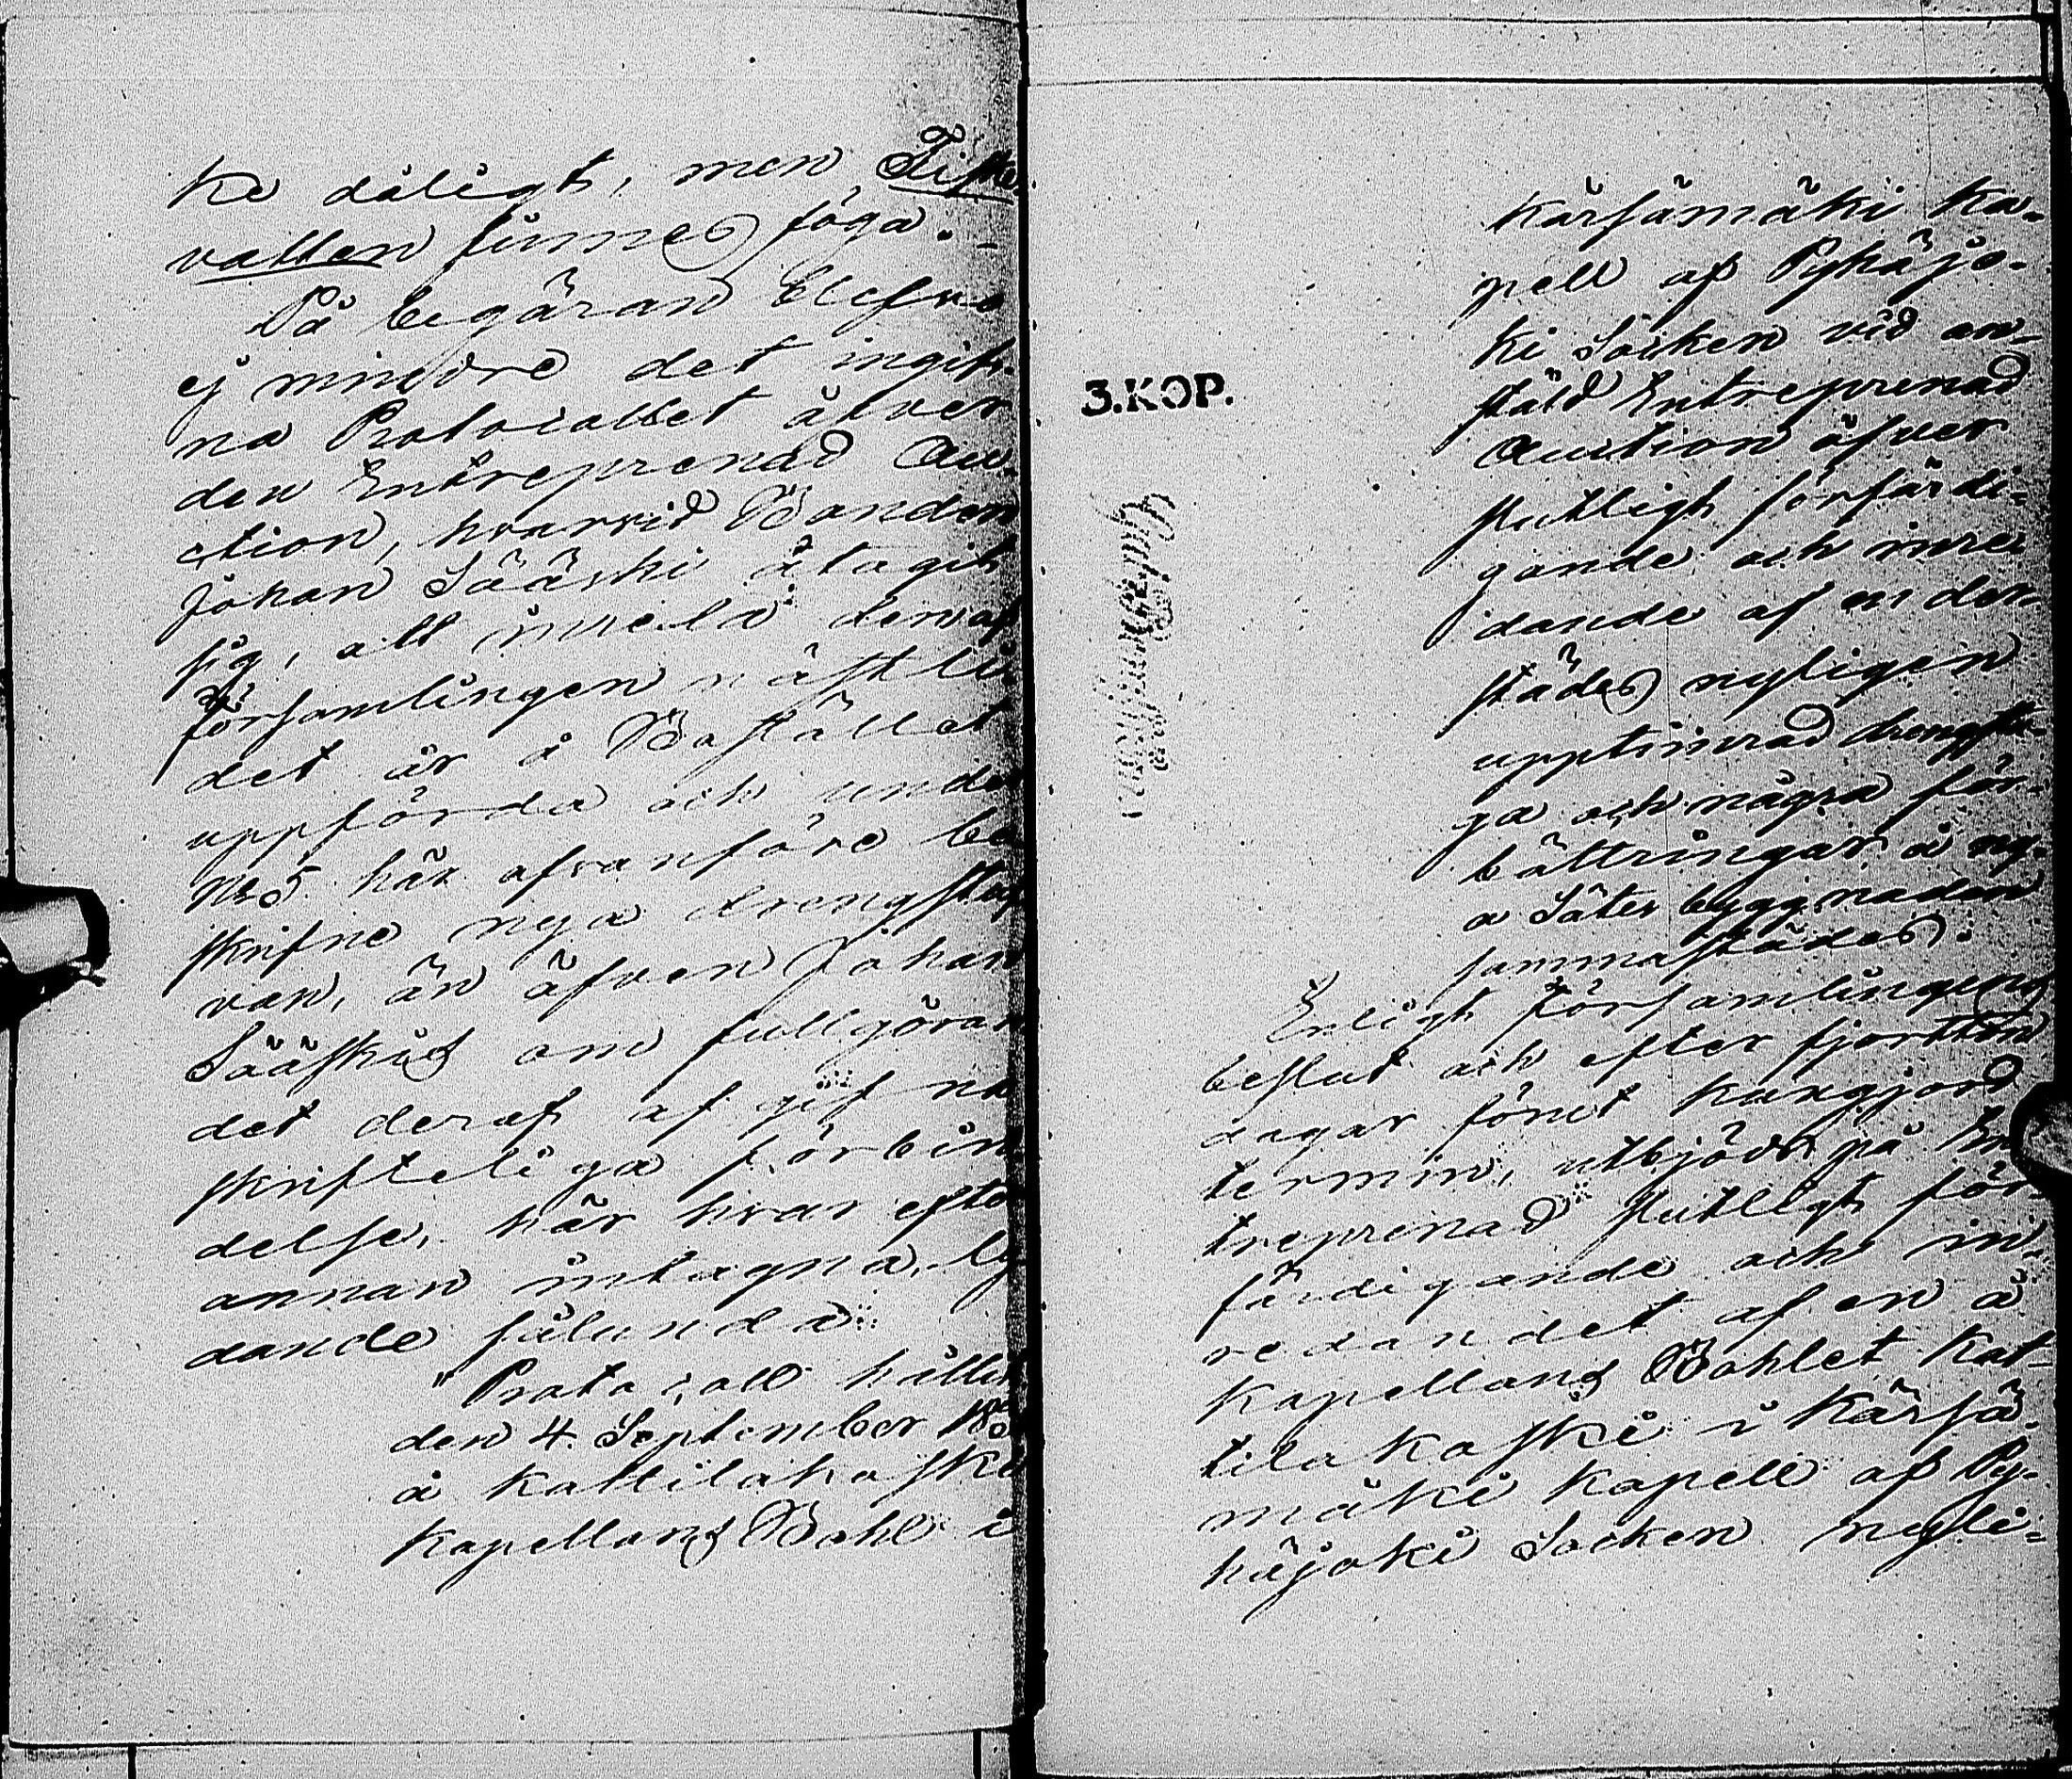 ke dåligt, men Fiske
vatten finnes föga.-
På begäran blefvo
ej mindre det ingifv
na Protocollet öfver
den Entreprenad Au-
ction, hvarvid Bonden
Johan Sääski åtagit
sig, att inreda den af
församlingen nästli
det år å Bostället
uppförda och under
N:o 5 här ofvanföre be
skrifne nya drengstu
van, än äfven Johan
Sääskis om fullgöran
det deraf afgifna
skrifteliga förbin
delse, här hvar efter
annan intagna, ly
dande sålunda:
"Protocoll hållit
den 4. September
å Kattilakoski
Kapellans Bohl i
3.KOP.
Kärsämäki Ka-
pell af Pyhäjo-
ki Socken vid an-
stäld Entreprenad
Auction öfver
slutligt förfärdi-
gande och inre-
dande af en der-
städes nyligen
upptimrad drengstu-
ga och några för-
bättringar å ny-
a Säteribyggnaden
sammastädes.
Enligt församlingens
beslut och efter fjortton
dagar förut kungjord
termin, utbjöds på En
treprenad slutligt för-
färdigande och in-
redandet af en å
Kapellans Bohlet Kat-
tilakoski i Kärsä-
mäki Kapell af Py-
häjoki Socken nyli-